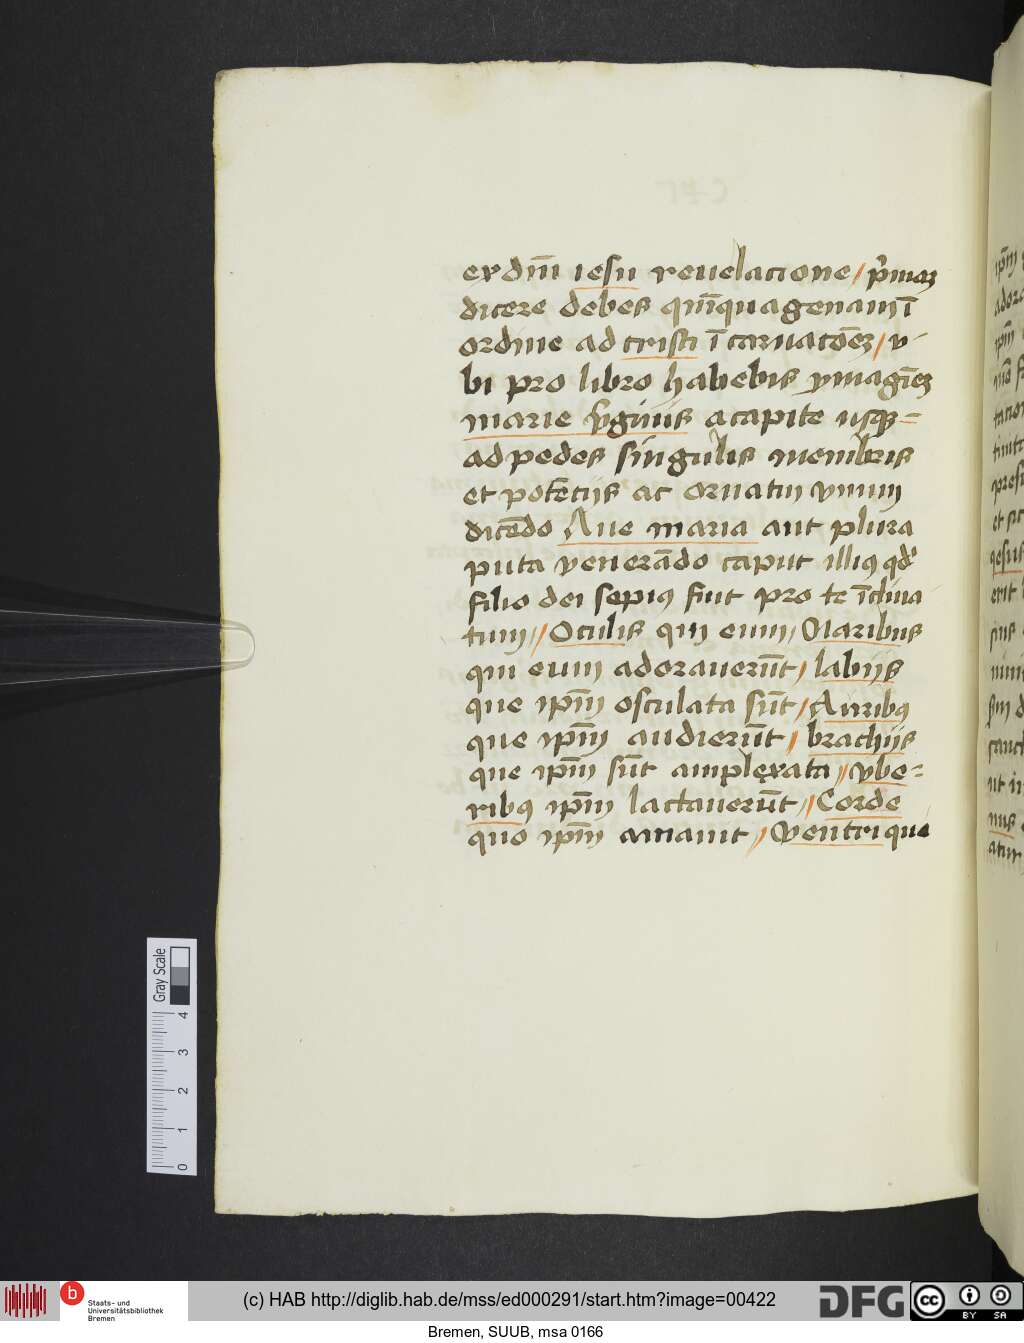 ex dnī iesu reuelacione / pͥmaꝫ
dicere debes quīquagenam ī
ordine ad cristi īcarnacōeꝫ / v-
bi pro libro habebis ymagīeꝫ
marie v̓ginis a capite usqꝫ =
ad pedes singulis membris
et potēcijs ac ornatui vnum
dicēdo Aue maria aut plura
puta venerādo caput illiꝰ qd̓
filio dei sepiꝰ fuit pro te īclina
tum // Oculis qui eum / Naribus
qui eum adorauerūt / labijs
que ipm̄ osculata sūt / Auribꝰ
que ipm̄ audierūt / brachijs
que ipm̄ sūt amplexata // vbe =
ribꝰ ipm̄ lactauerūt // Corde
quo ipm̄ amauit // Ventri que
Gray Scale
0 1 2 3 4
Staats- und
Universitätsbibliothek
Bremen
(c) HAB http://diglib.hab.de/mss/ed000291/start.htm?image=00422
DFG
cc BY SA
Bremen, SUUB, msa 0166